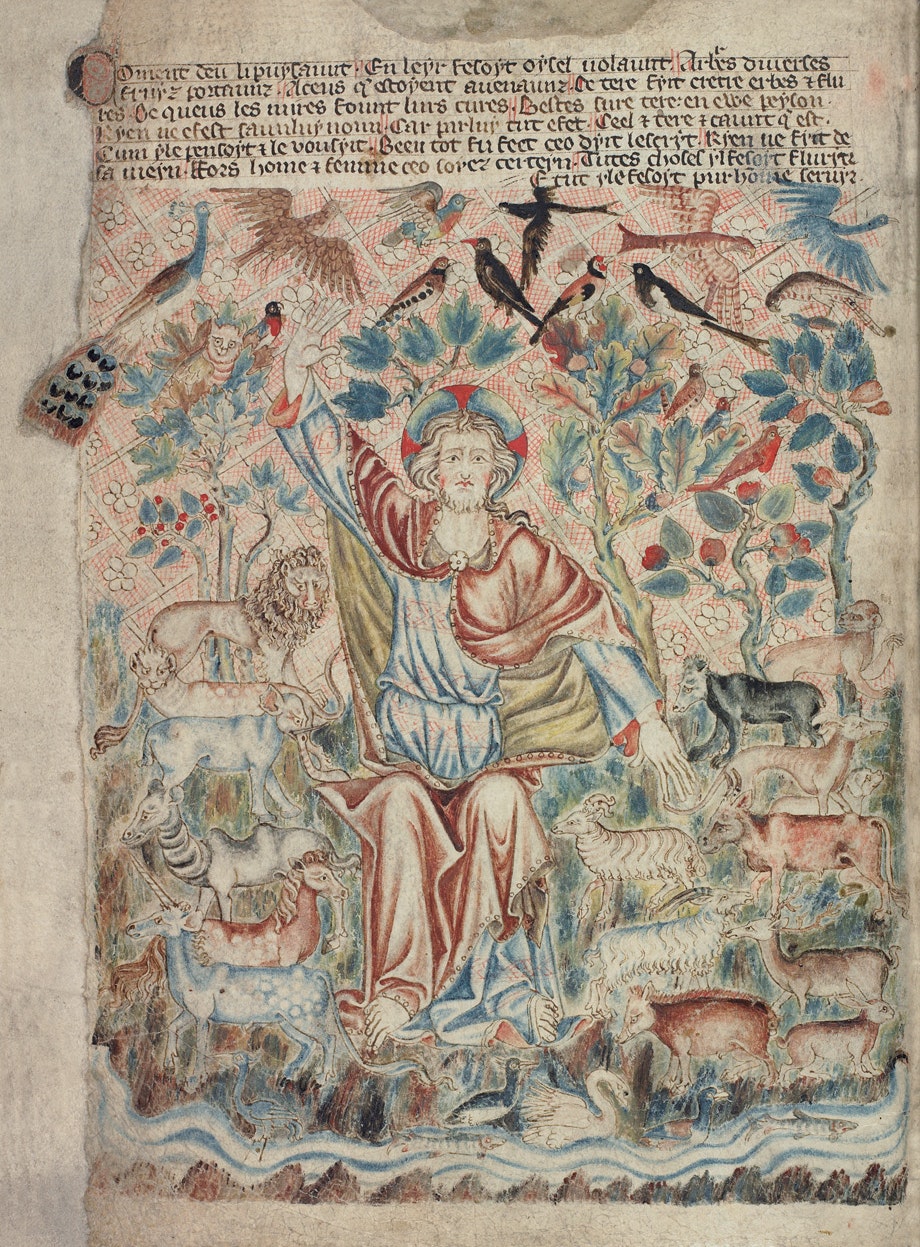 Coment deu li puysaunt · En leyr fesoyt oysel volaunt · Arbres diverses
fruyz portaunz · Aceus qe estoyent avenaunz · De tere fyit cretre erbes & flu
res · De queus les mires fount lurs cures · Bestes sure tere: en ewe peyson ·
Ryen ne efest saunz luy noun · Car par luy tut efet · Ceel & tere & caunt qe est ·
Cum yle pensoyt & le vousyt · Been tot fu feet ceo dyit lescryt · Ryen ne fyit de
sa meyn · Fors home & femme ceo soyez certeyn · Tutes choses yl fesoyt flurir
E tut yle fesoyt pur home servyr ·